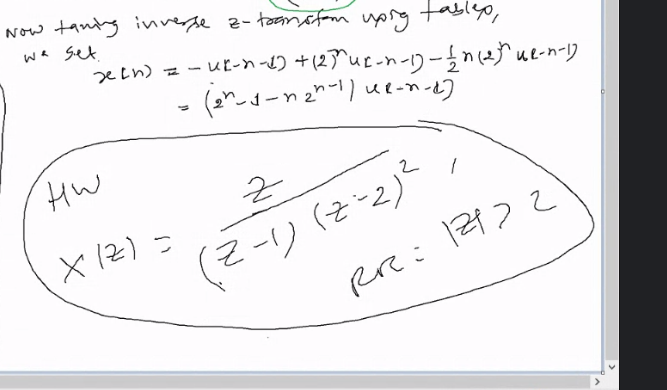 Now taking inverse z-transform using tables,
we get
x(n) = -u(-n-1) + (2)^n u(-n-1) - 1/2 n(2)^n u(-n-1)
= (2^n - 1 - n 2^{n-1}) u(-n-1)
HW
X(z) = z / (z-1)(z-2)^2 ,
ROC: |z| > 2